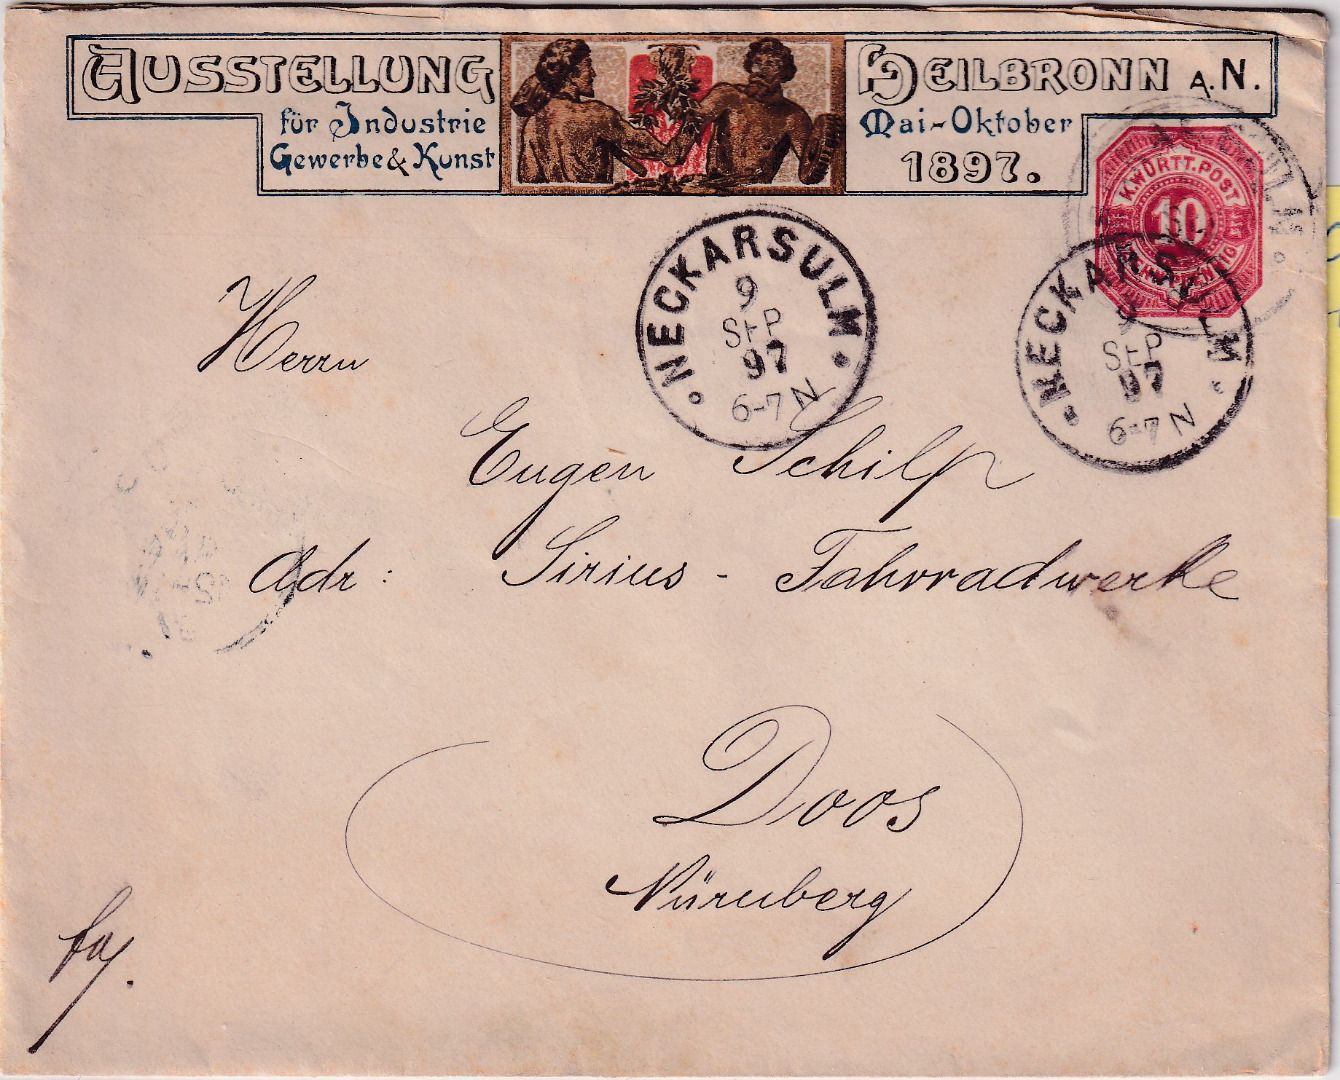 AUSSTELLUNG
für Industrie
Gewerbe & Kunst
HEILBRONN A.N.
Mai-Oktober
1897.
K.WÜRTT.POST
10
NECKARSULM
9
SEP
97
6-7N
NECKARSULM
9
SEP
97
6-7N
Herrn
Eugen Schilp
Adr: Sirius - Fahrradwerke
Doos
Nürnberg